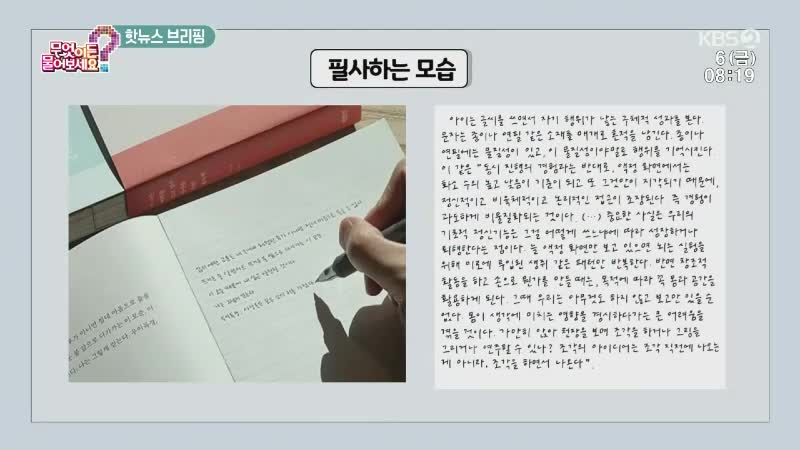 무엇이든
물어보세요
핫뉴스 브리핑
KBS
6(금)
08:19
필사하는 모습
아이는 글씨를 쓰면서 자기 행위가 낳는 구체적 성과를 본다.
문자는 종이나 연필 같은 소재를 매개로 흔적을 남긴다. 종이나
연필에는 물질성이 있고, 이 물질성이야말로 행위를 기억시킨다.
이 같은 "동시 진행의 경험과는 반대로, 액정 화면에서는
화소 수의 높고 낮음이 기준이 되고 또 그것만이 지각되기 때문에,
정신적이고 비육체적이고 논리적인 접근이 조장된다. 즉 경험이
과도하게 비물질화되는 것이다. (…) 중요한 사실은 우리의
기록적 정신기능은 그걸 어떻게 쓰느냐에 따라 성장하거나
퇴행한다는 점이다. 늘 액정 화면만 보고 있으면 뇌는 실험을
위해 미로에 투입된 생쥐 같은 패턴만 반복한다. 반면 창조적
활동을 하고 손으로 뭔가를 만들 때는, 목적에 따라 몸과 공간을
활용하게 된다. 그때 우리는 아무것도 하지 않고 보고만 있을 수
없다. 몸이 생각에 미치는 영향을 경시하다가는 큰 어려움을
겪을 것이다. 가만히 앉아 천장을 보며 조각을 하거나 그림을
그리거나 연주할 수 있나? 조각의 아이디어는 조각 직전에 나오는
게 아니라, 조각을 하면서 나온다".